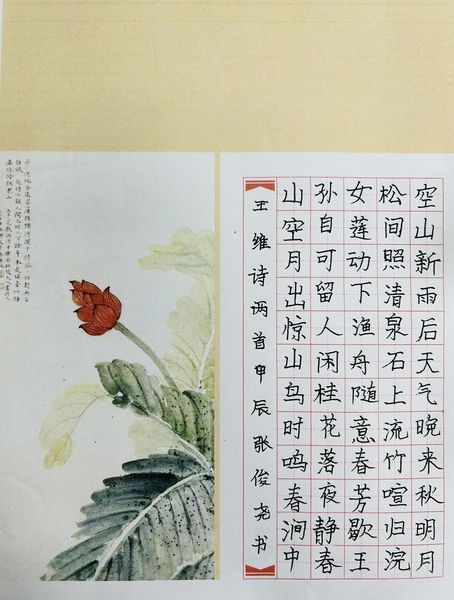 空山新雨后天气晚来秋明月
松间照清泉石上流竹喧归浣
女莲动下渔舟随意春芳歇王
孙自可留人闲桂花落夜静春
山空月出惊山鸟时鸣春涧中
王维诗两首甲辰张俊尧书